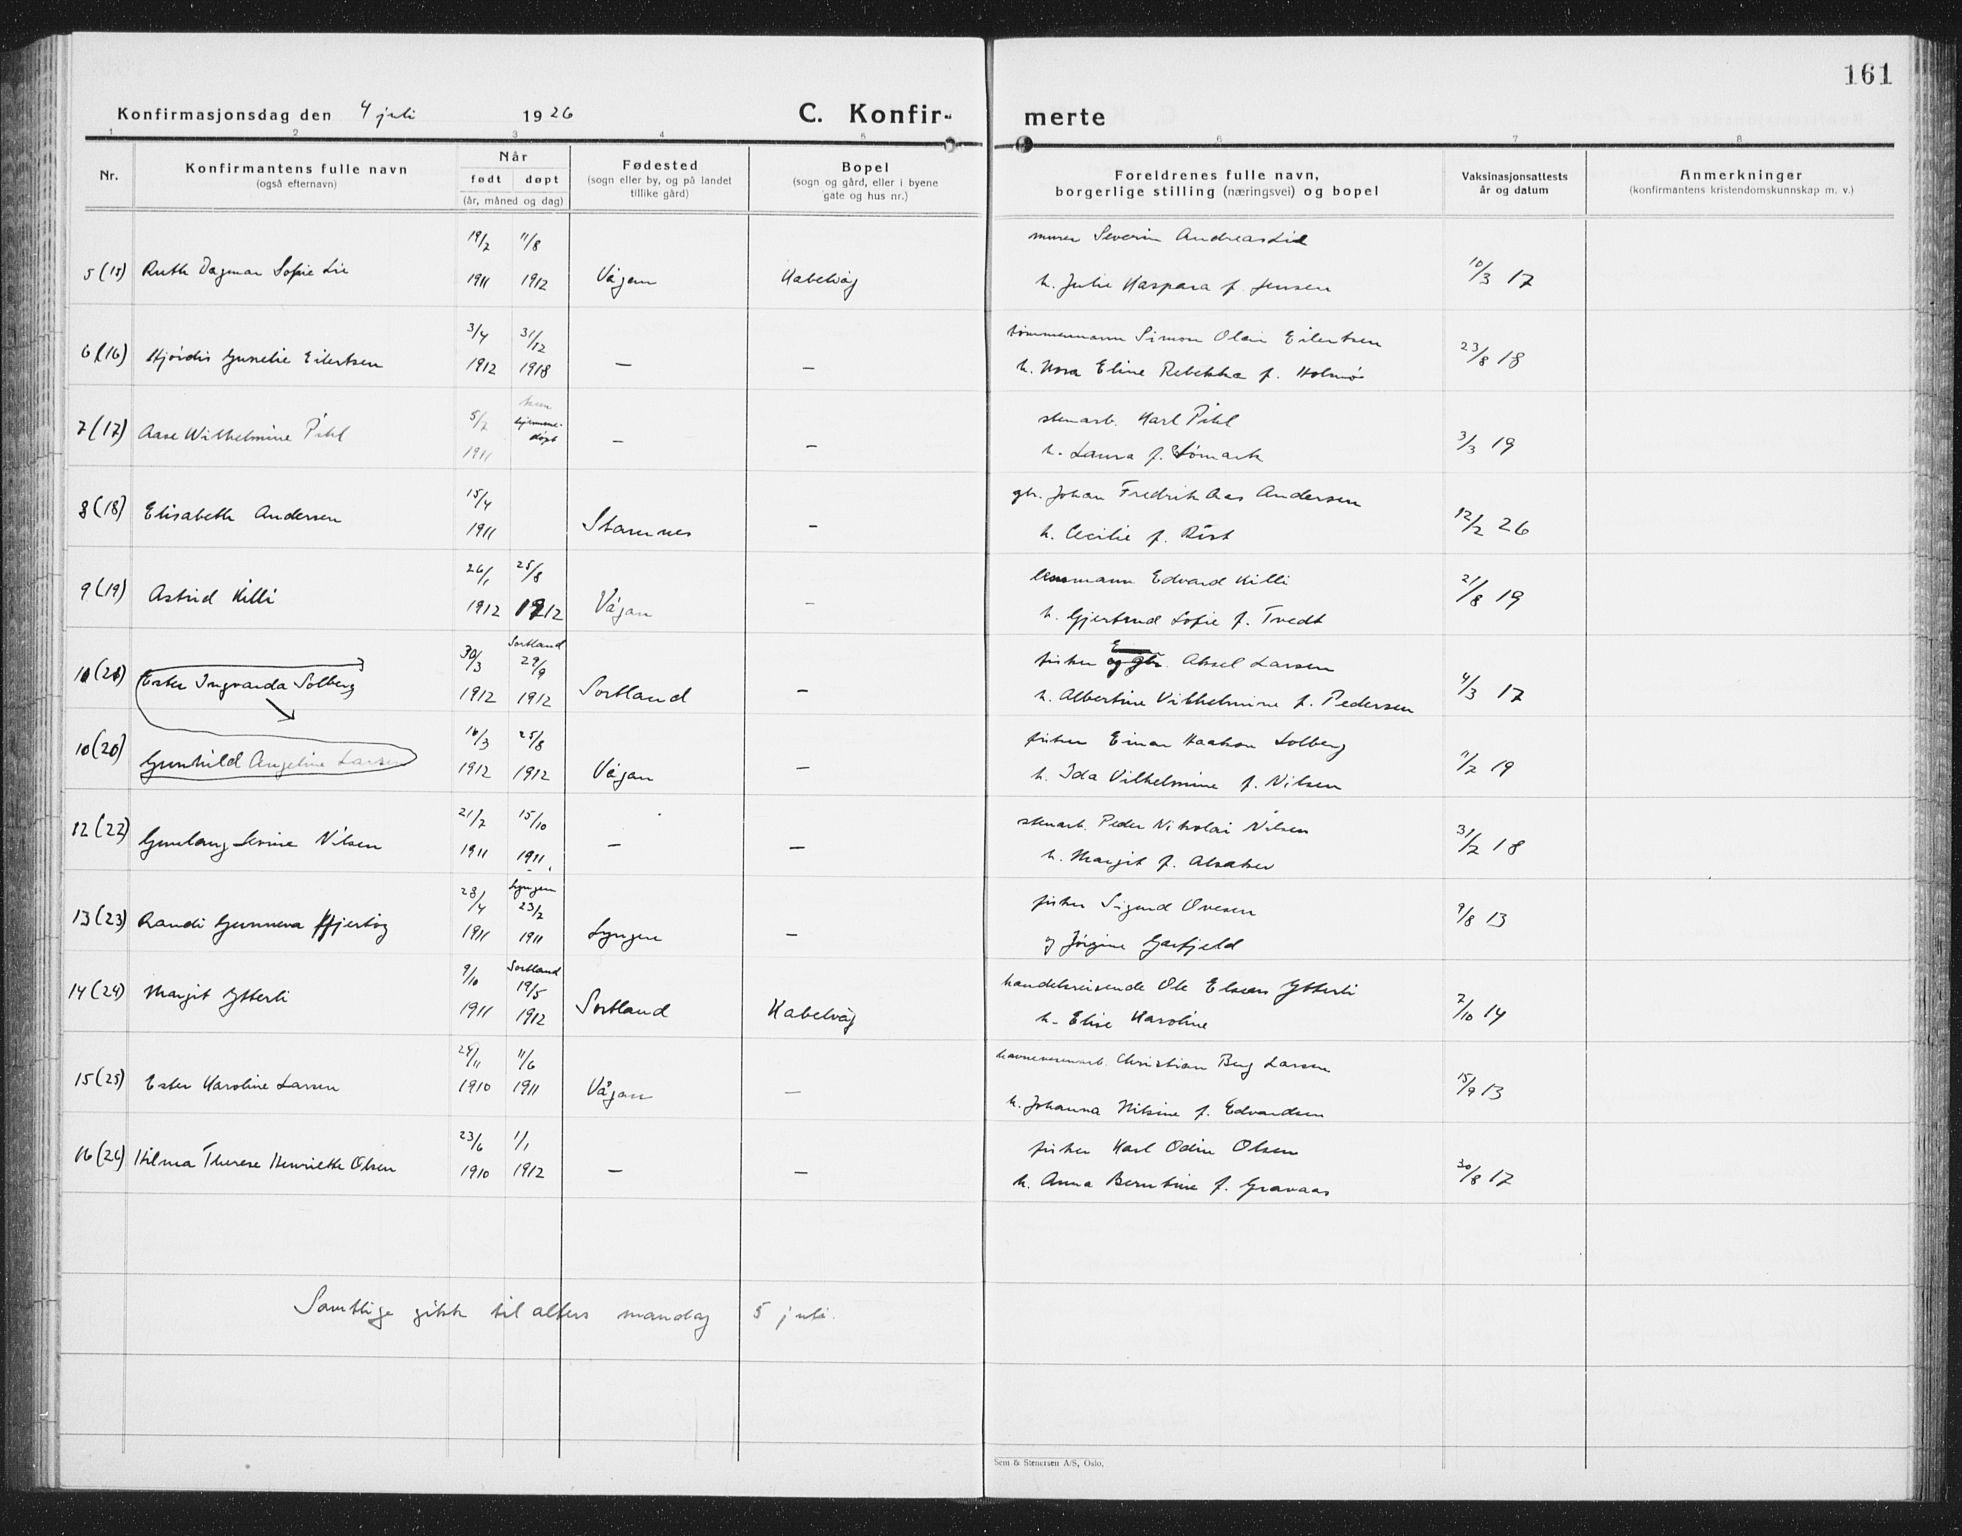 161
Konfirmasjonsdag den 4 juli 1926 C. Konfir- merte
1 2 3 4 5 6 7 8
Nr.
Konfirmantens fulle navn
(også efternavn)
Når
født døpt
(år, måned og dag)
Fødested
(sogn eller by, og på landet
tillike gård)
Bopel
(sogn og gård, eller i byene
gate og hus nr.)
Foreldrenes fulle navn,
borgerlige stilling (næringsvei) og bopel
Vaksinasjonsattests
år og datum
Anmerkninger
(konfirmantens kristendomskunnskap m. v.)
19/2 11/8 murer Severin Andreas Lie
5 (15) Ruth Dagmar Sofie Lie 1911 1912 Vågan Kabelvåg h. Julie Kaspara f. Jensen 10/3 17
3/4 31/12 tømmermann Simon Olai Eilertsen
6 (16) Hjørdis Gunelie Eilertsen 1912 1918 — — h. Nora Eline Rebekka f. Holmø 23/8 18
5/2 kun hjemme-døpt stenarb. Karl Pihl
7 (17) Aase Wilhelmine Pihl 1911 — — h. Laura f. Sømark 3/3 19
15/4 gbr. Johan Fredrik Aas Andersen
8 (18) Elisabeth Andersen 1911 Stamnes — h. Cecilie f. Røst 12/2 26
26/1 25/8 lensmann Edvard Killi
9 (19) Astrid Killi 1912 1912 Vågan — h. Gjertrud Sofie f. Tvedt 21/8 19
30/3 Sortland 29/9 fisker og gbr. Aksel Larsen
Ester Ingvarda Solberg 1912 1912 Sortland — h. Albertine Vilhelmine f. Pedersen 4/3 17
16/3 25/8 fisker Einar Haakon Solberg
10 (20) Gunhild Angeline Larsen 1912 1912 Vågan — h. Ida Vilhelmine f. Nilsen 11/2 19
21/2 15/10 stenarb. Peder Nikolai Nilsen
12 (22) Gunlaug Sevine Nilsen 1911 1911 — — h. Margit f. Alsaker 31/2 18
28/4 Lyngen 23/2 fisker Sigurd Ovesen
13 (23) Randi Gunneva 1911 1911 Lyngen — og Jørgine Garfjeld 9/8 13
9/10 Sortland 19/5 handelsreisende Ole Ytterli
14 (24) Margit Ytterli 1911 1912 Sortland Kabelvåg h. Elise Karoline 7/10 14
24/11 11/6 havnevesenarb. Christian Berg Larsen
15 (25) Ester Karoline Larsen 1910 1911 Vågan — h. Johanna Nilsine f. Edvardsen 15/9 13
23/6 1/1 fisker Karl Odin Olsen
16 (26) Hilma Therese Henriette Olsen 1910 1912 — — h. Anna Berntine f. Gravaas 30/8 17
Samtlige gikk til alters mandag 5 juli.
Sem & Stenersen A/S, Oslo.